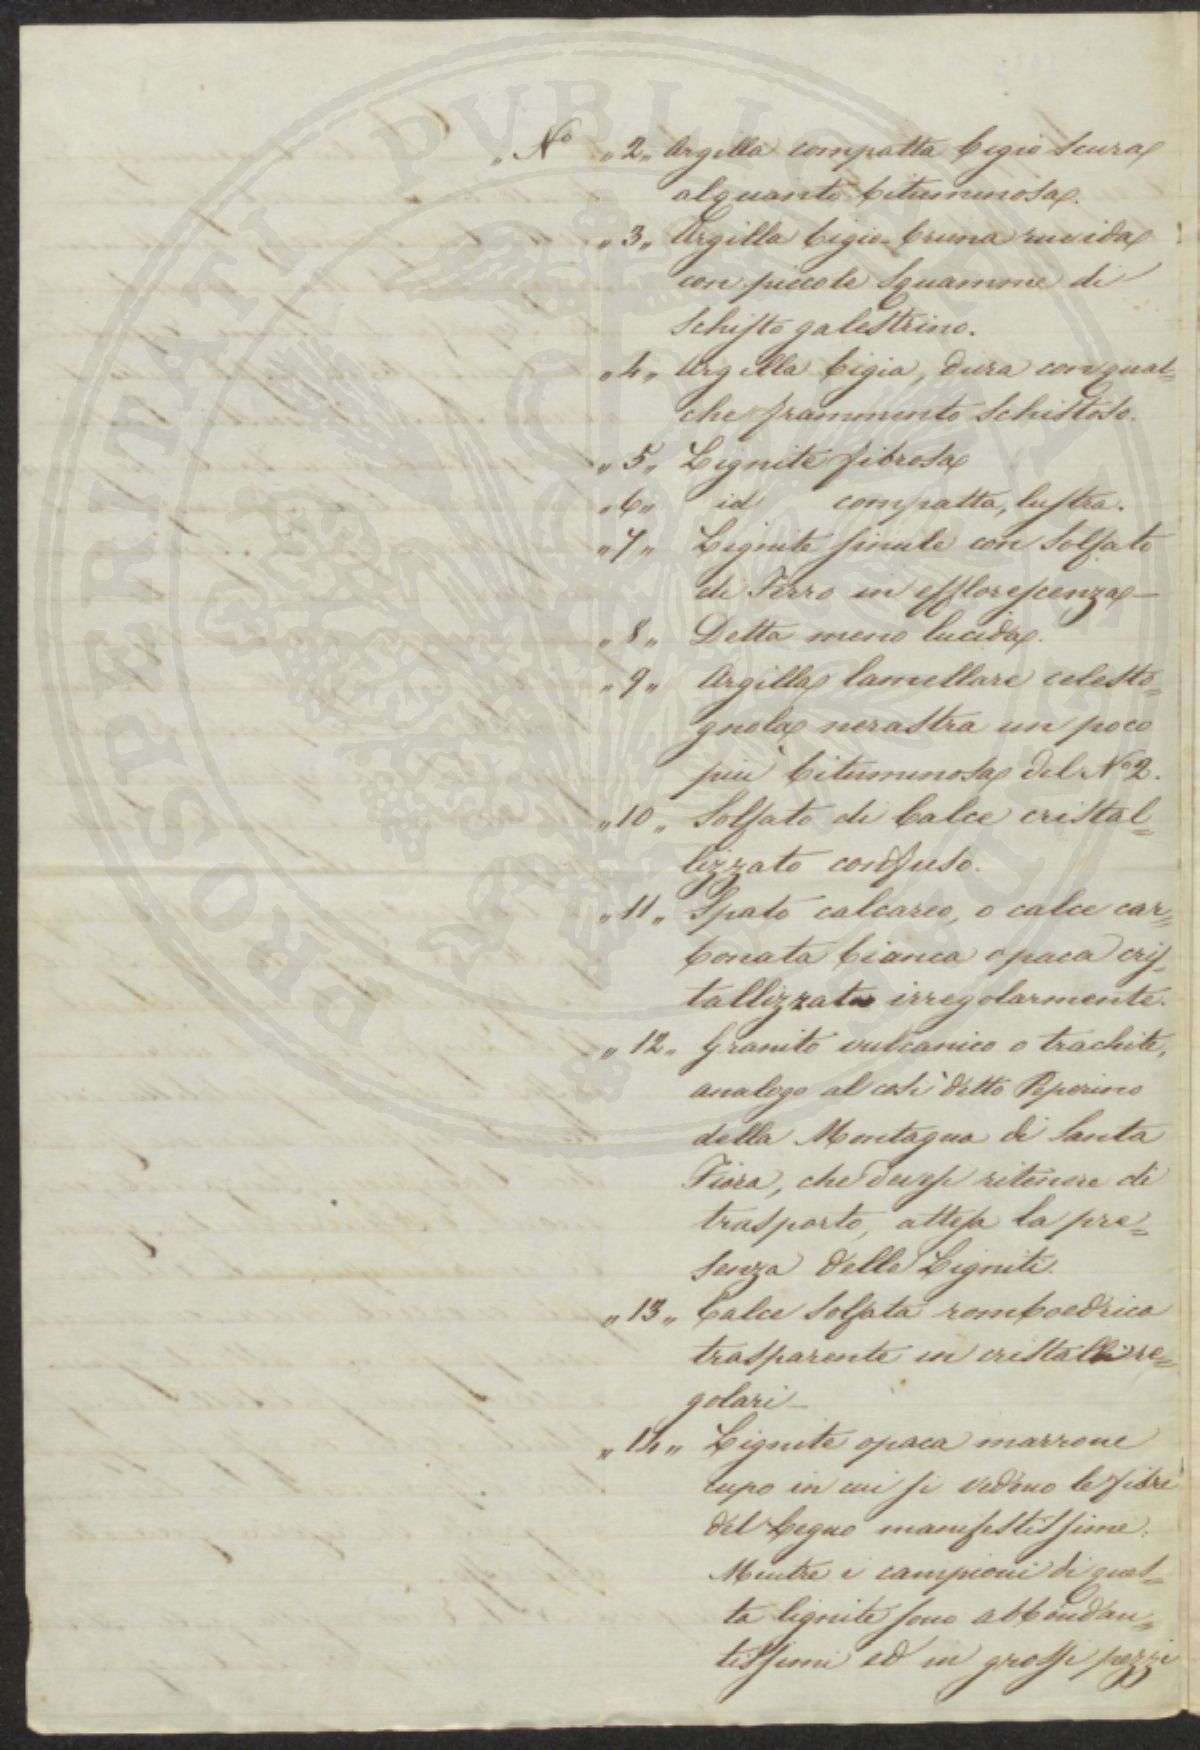 „ Nº „ 2 „ Argilla compatta bigio scura
alquanto bituminosa.
„ 3 „ Argilla bigio-bruna ruvida
con piccole squamme di
schisto galestrino.
„ 4 „ Argilla bigia, dura con qual=
che frammento schistoso.
„ 5 „ Lignite fibrosa
„ 6 „ id compatta, lustra.
„ 7 „ Lignite simile con Solfato
di Ferro in efflorescenza —
„ 8 „ Detta meno lucida.
„ 9 „ Argilla lamellare celesto=
gnola nerastra un poco
più bituminosa del Nº 2.
„ 10 „ Solfato di Calce cristal=
lizzato confuso.
„ 11 „ Spato calcareo, o calce car=
bonata bianca opaca cris=
tallizzata irregolarmente.
„ 12 „ Granito vulcanico o trachite,
analogo al così detto Peperino
della Montagna di Santa
Fiora, che devesi ritenere di
trasporto, attesa la pre=
senza delle Ligniti.
„ 13 „ Calce solfata romboedrica
trasparente in cristalli re=
golari —
„ 14 „ Lignite opaca marrone
cupo in cui si vedono le fibre
del Legno manifestissime.
Mentre i campioni di ques=
ta lignite sono abbondan=
tissimi ed in grossi pezzi
PROSPERITATI PVBLICAE